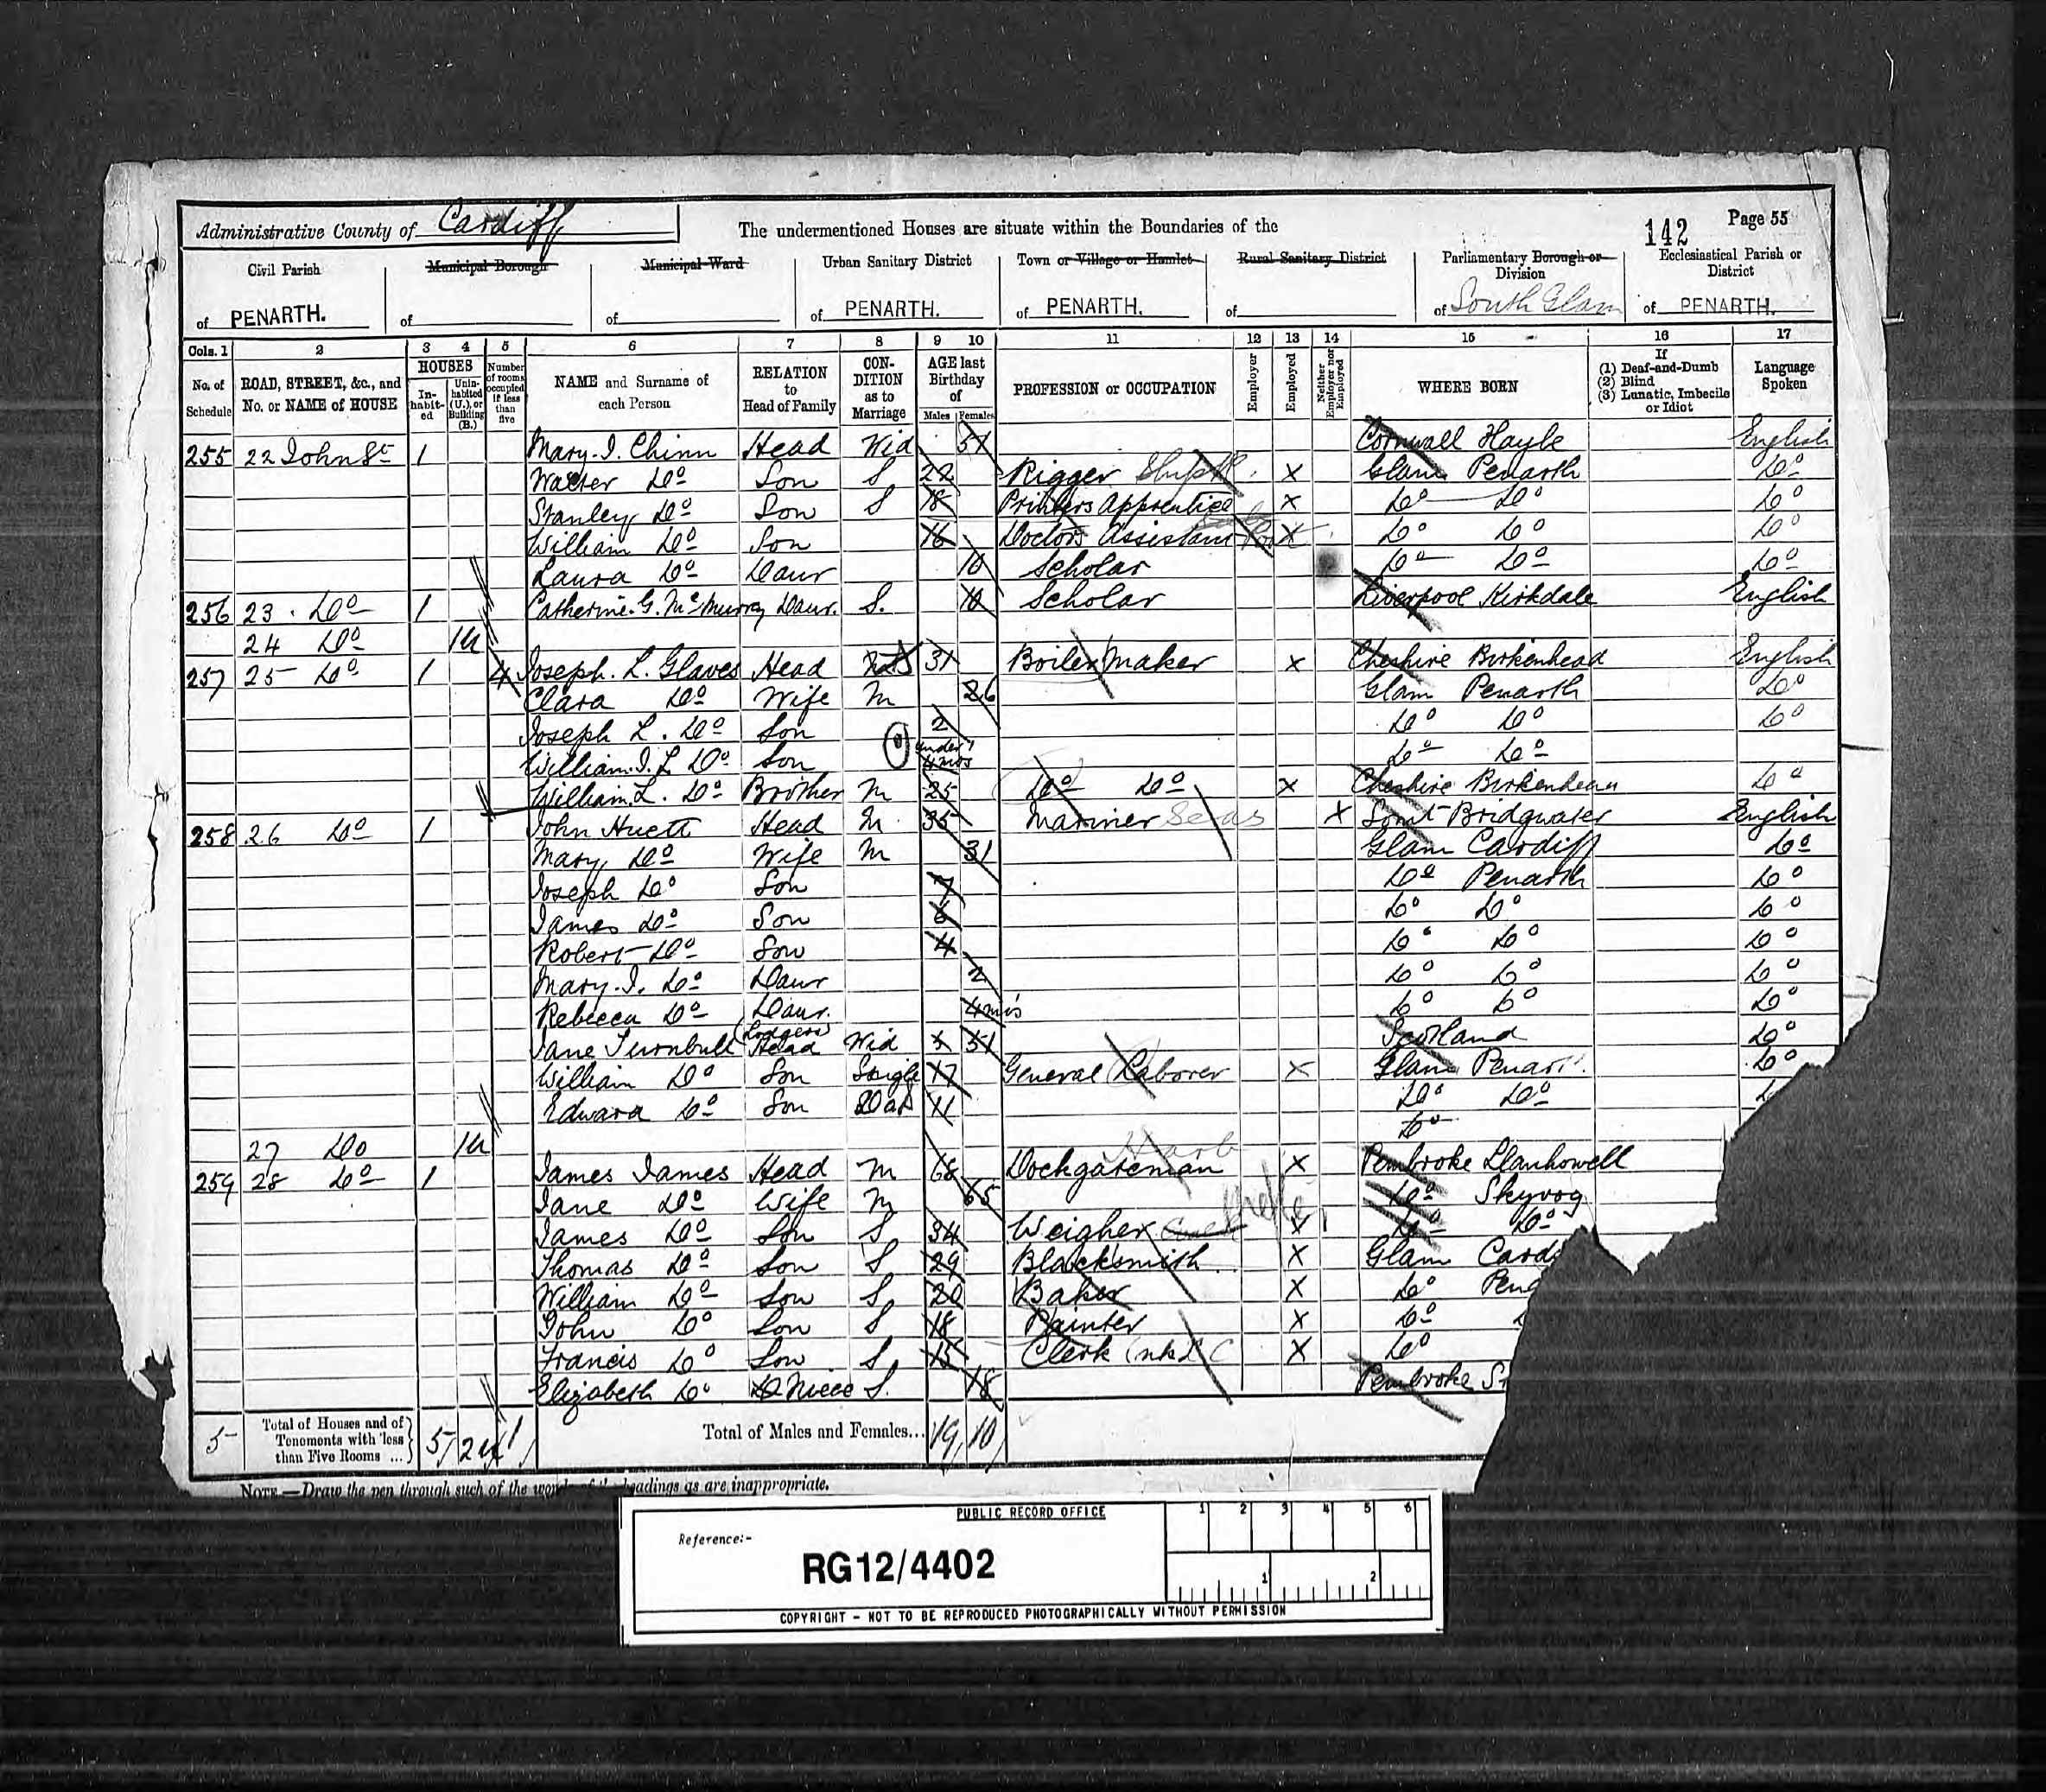 Administrative County of Cardiff
The undermentioned Houses are situate within the Boundaries of the
142
Page 55
Civil Parish of PENARTH.
Municipal Borough of
Municipal Ward of
Urban Sanitary District of PENARTH.
Town or Village or Hamlet of PENARTH.
Rural Sanitary District of
Parliamentary Borough or Division of South Glam
Ecclesiastical Parish or District of PENARTH.
Cols. 1 2 3 4 5 6 7 8 9 10 11 12 13 14 15 16 17
No. of Schedule
ROAD, STREET, &c., and No. or NAME of HOUSE
HOUSES
In-habit-ed
Unin-habited (U.), or Building (B.)
Number of rooms occupied if less than five
NAME and Surname of each Person
RELATION to Head of Family
CON-DITION as to Marriage
AGE last Birthday of
Males Females
PROFESSION or OCCUPATION
Employer
Employed
Neither Employer nor Employed
WHERE BORN
If (1) Deaf-and-Dumb (2) Blind (3) Lunatic, Imbecile or Idiot
Language Spoken
255 22 John St 1 Mary. I. Chinn Head Wid 51 Cornwall Hayle English
Walter Do Son S 22 Rigger X Glam Penarth Do
Stanley Do Son S 18 Printers Apprentice X Do Do Do
William Do Son 16 Doctors Assistant X Do Do Do
Laura Do Daur 10 Scholar Do Do Do
256 23 Do 1 Catherine. G. McMurray Daur. S. 10 Scholar Liverpool Kirkdale English
24 Do 1u
257 25 Do 1 4 Joseph. L. Glaves Head 31 Boiler Maker X Cheshire Birkenhead English
Clara Do Wife M 26 Glam Penarth Do
Joseph L. Do Son 2 Do Do Do
William. I. L Do Son under 1 4 mos Do Do
William. L. Do Brother M 25 Do Do X Cheshire Birkenhead Do
258 26 Do 1 John Huett Head M 35 Mariner Seas X Somt Bridgwater English
Mary Do Wife M 31 Glam Cardiff Do
Joseph Do Son 7 Do Penarth Do
James Do Son 6 Do Do Do
Robert Do Son 4 Do Do Do
Mary. I. Do Daur 2 Do Do Do
Rebecca Do Daur. 4 mo's Do Do Do
Jane Turnbull (Lodgers) Head Wid 51 Scotland Do
William Do Son Single 17 General Laborer X Glam Penart Do
Edward Do Son 11 Do Do
Do
27 Do 1u
259 28 Do 1 James James Head M 68 Dockgateman Harb X Pembroke Llanhowell
Jane Do Wife M 65 Do Skyvog
James Do Son S 34 Weigher X Do Do
Thomas Do Son S 29 Blacksmith X Glam Card
William Do Son S 20 Baker X Do Pen
John Do Son S 18 Painter X Do
Francis Do Son S 15 Clerk X Do
Elizabeth Do Niece S. 18 Pembroke
5 Total of Houses and of Tenements with less than Five Rooms ... 5 2u 1 Total of Males and Females... 19 10
NOTE.—Draw the pen through such of the words of the headings as are inappropriate.
PUBLIC RECORD OFFICE
1 2 3 4 5 6
Reference:-
RG12/4402
1 2
COPYRIGHT - NOT TO BE REPRODUCED PHOTOGRAPHICALLY WITHOUT PERMISSION